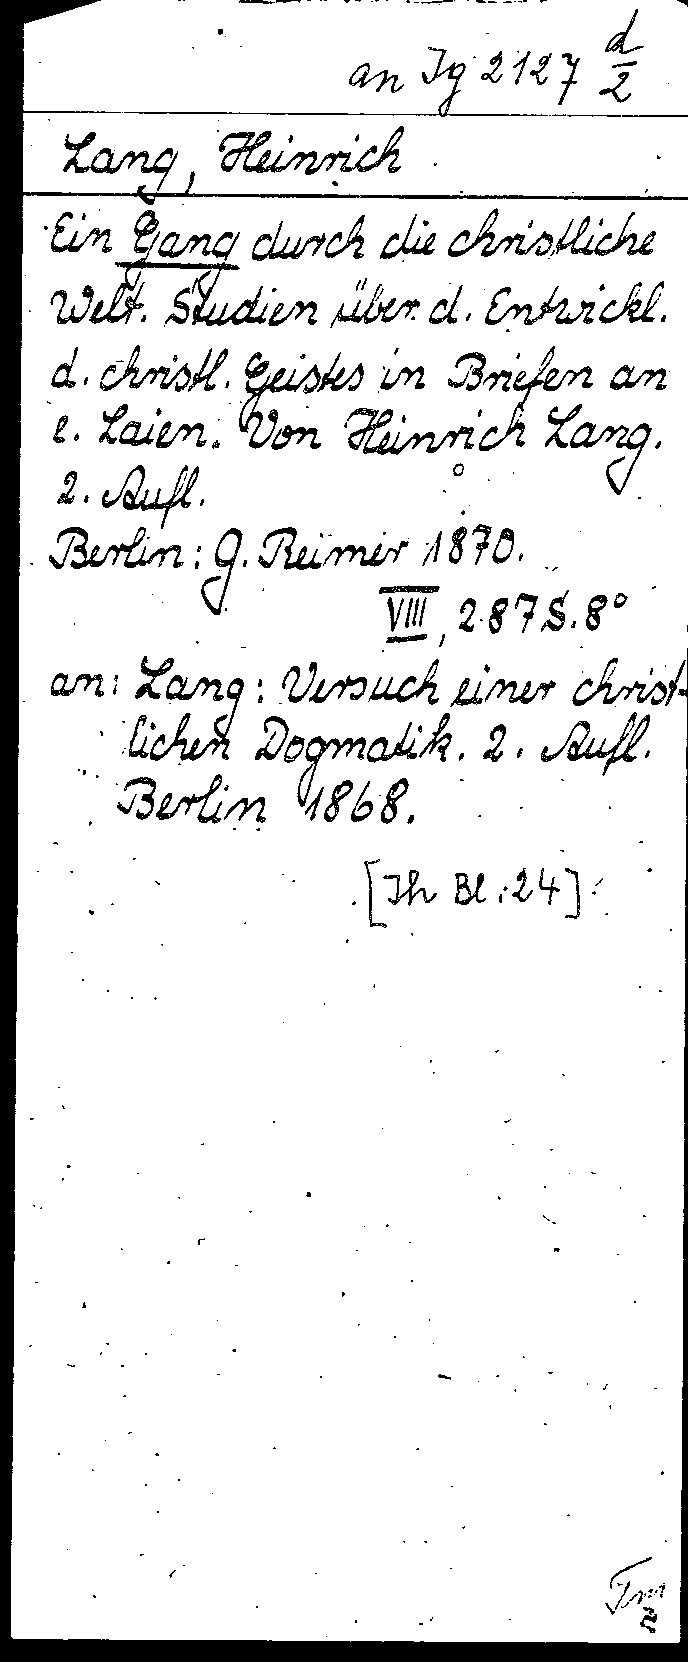 an Jg 2127 d/2
Lang, Heinrich
Ein Gang durch die christliche
Welt. Studien über d. Entwickl.
d. christl. Geistes in Briefen an
e. Laien. Von Heinrich Lang.
2. Aufl.
Berlin: G. Reimer 1870.
VIII, 287 S. 8°
an: Lang: Versuch einer christ-
lichen Dogmatik. 2. Aufl.
Berlin 1868.
[Th Bl: 24]